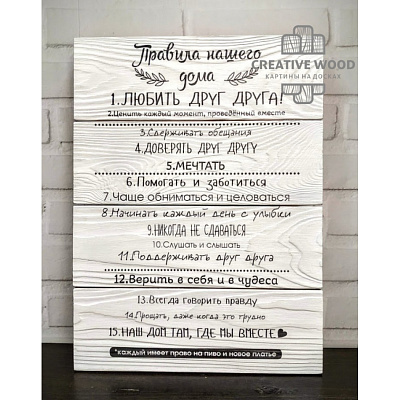 CREATIVE WOOD
КАРТИНЫ НА ДОСКАХ
Правила нашего
дома
1.ЛЮБИТЬ ДРУГ ДРУГА!
2.Ценить каждый момент, проведённый вместе
3.Сдерживать обещания
4.ДОВЕРЯТЬ ДРУГ ДРУГУ
5.МЕЧТАТЬ
6.Помогать и заботиться
7.Чаще обниматься и целоваться
8.Начинать каждый день с улыбки
9.НИКОГДА НЕ СДАВАТЬСЯ
10.Слушать и слышать
11.Поддерживать друг друга
12.Верить в себя и в чудеса
13.Всегда говорить правду
14.Прощать, даже когда это трудно
15.НАШ ДОМ ТАМ, ГДЕ МЫ ВМЕСТЕ
*каждый имеет право на пиво и новое платье